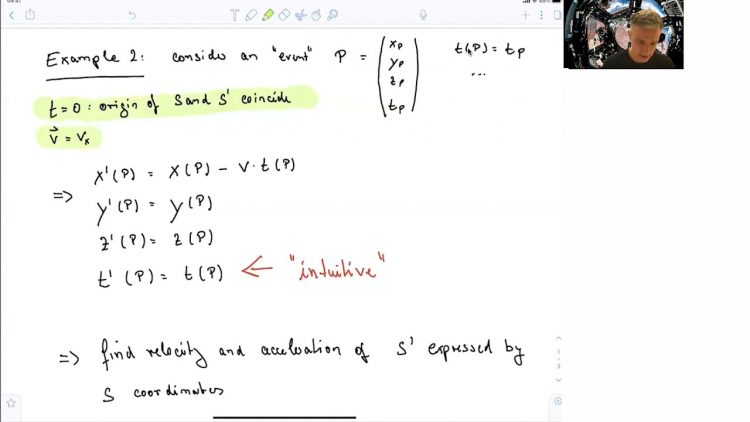 Example 2: consider an "event" P = ( xp yp zp tp ) t(P) = tp
...
t=0: origin of S and S' coincide
v⃗ = vx
=> x'(P) = x(P) - v·t(P)
y'(P) = y(P)
z'(P) = z(P)
t'(P) = t(P) <- "intuitive"
=> find velocity and acceleration of S' expressed by
S coordinates